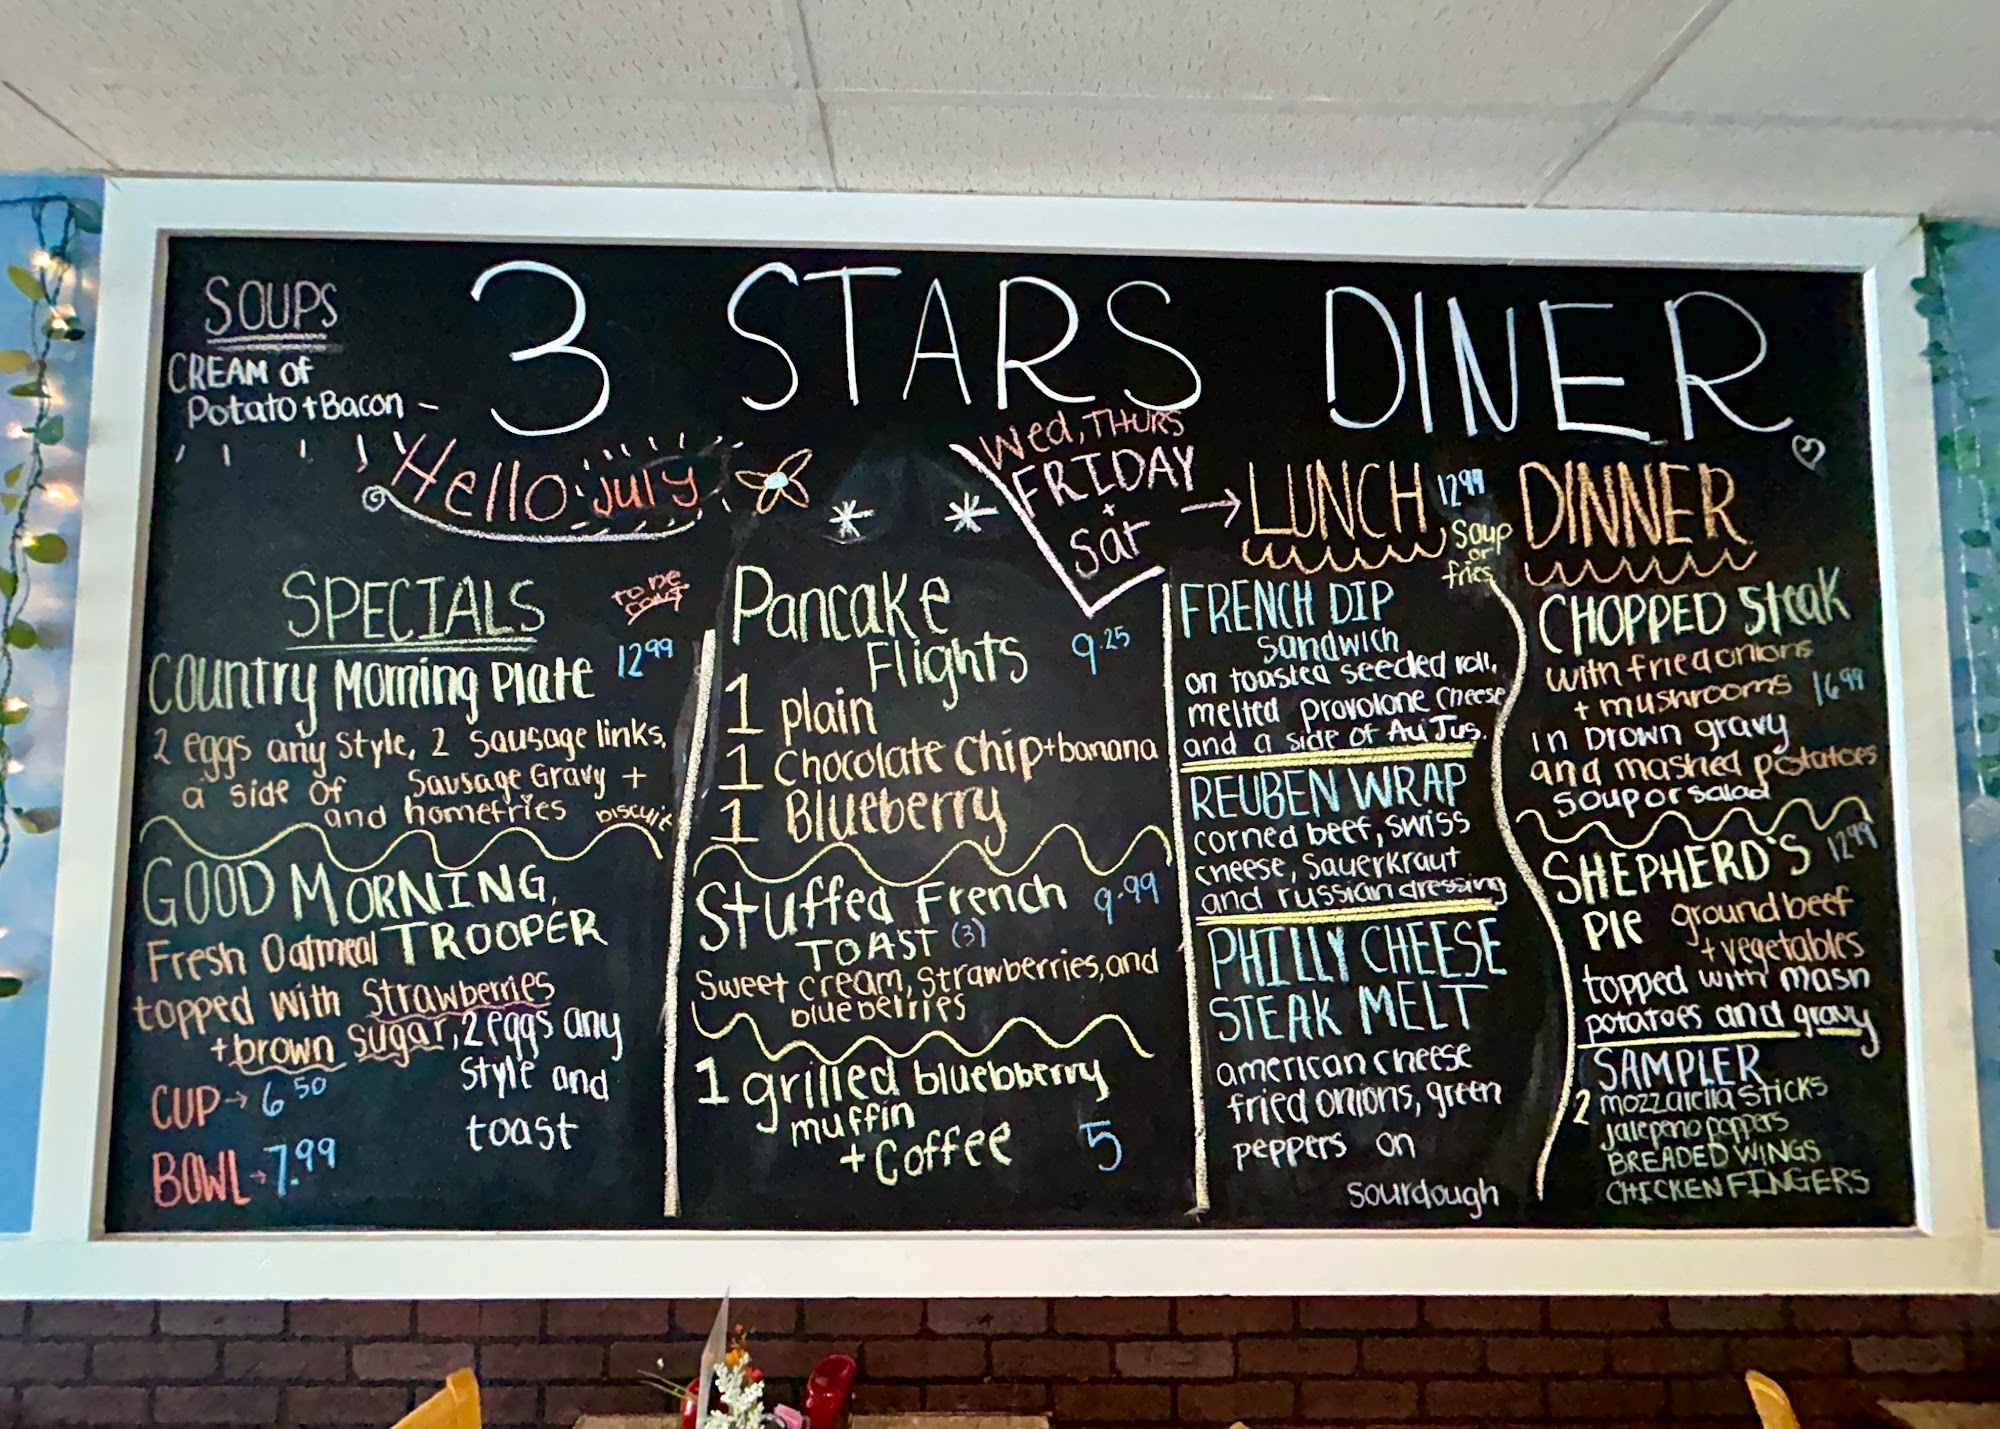 3 STARS DINER
SOUPS
CREAM of
Potato + Bacon -
Hello July
Wed, THURS
FRIDAY
+
Sat
SPECIALS
Country Morning Plate 12.99
2 eggs any style, 2 sausage links,
a side of Sausage Gravy +
and homefries Biscuit
GOOD MORNING,
TROOPER
Fresh Oatmeal
topped with Strawberries
+ brown sugar, 2 eggs any
style and
toast
CUP → 6.50
BOWL → 7.99
Pancake
Flights 9.25
1 plain
1 Chocolate Chip + banana
1 Blueberry
Stuffed French 9.99
TOAST (3)
Sweet cream, Strawberries, and
blueberries
1 grilled bluebberry
muffin
+ Coffee 5
LUNCH 12.99
Soup
or
fries
FRENCH DIP
Sandwich
on toasted seeded roll,
melted provolone cheese
and a side of Au Jus.
REUBEN WRAP
corned beef, swiss
cheese, Sauerkraut
and russian dressing
PHILLY CHEESE
STEAK MELT
american cheese
fried onions, green
peppers on
sourdough
DINNER
CHOPPED Steak
with fried onions
+ mushrooms 16.99
in brown gravy
and mashed potatoes
Soup or salad
SHEPHERD'S 12.99
PIE ground beef
+ vegetables
topped with mash
potatoes and gravy
SAMPLER
2 mozzarella sticks
jalepeno poppers
BREADED WINGS
CHICKEN FINGERS